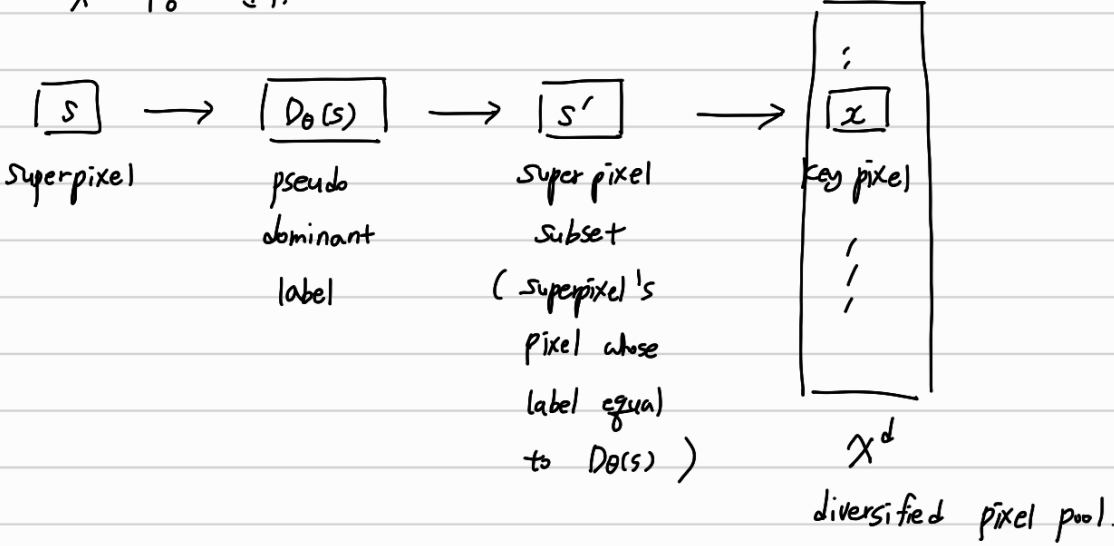 s → Dθ(s) → s′ → x
superpixel
pseudo
dominant
label
super pixel
subset
( superpixel's
pixel whose
label equal
to Dθ(s) )
key pixel
X^d
diversified pixel pool.